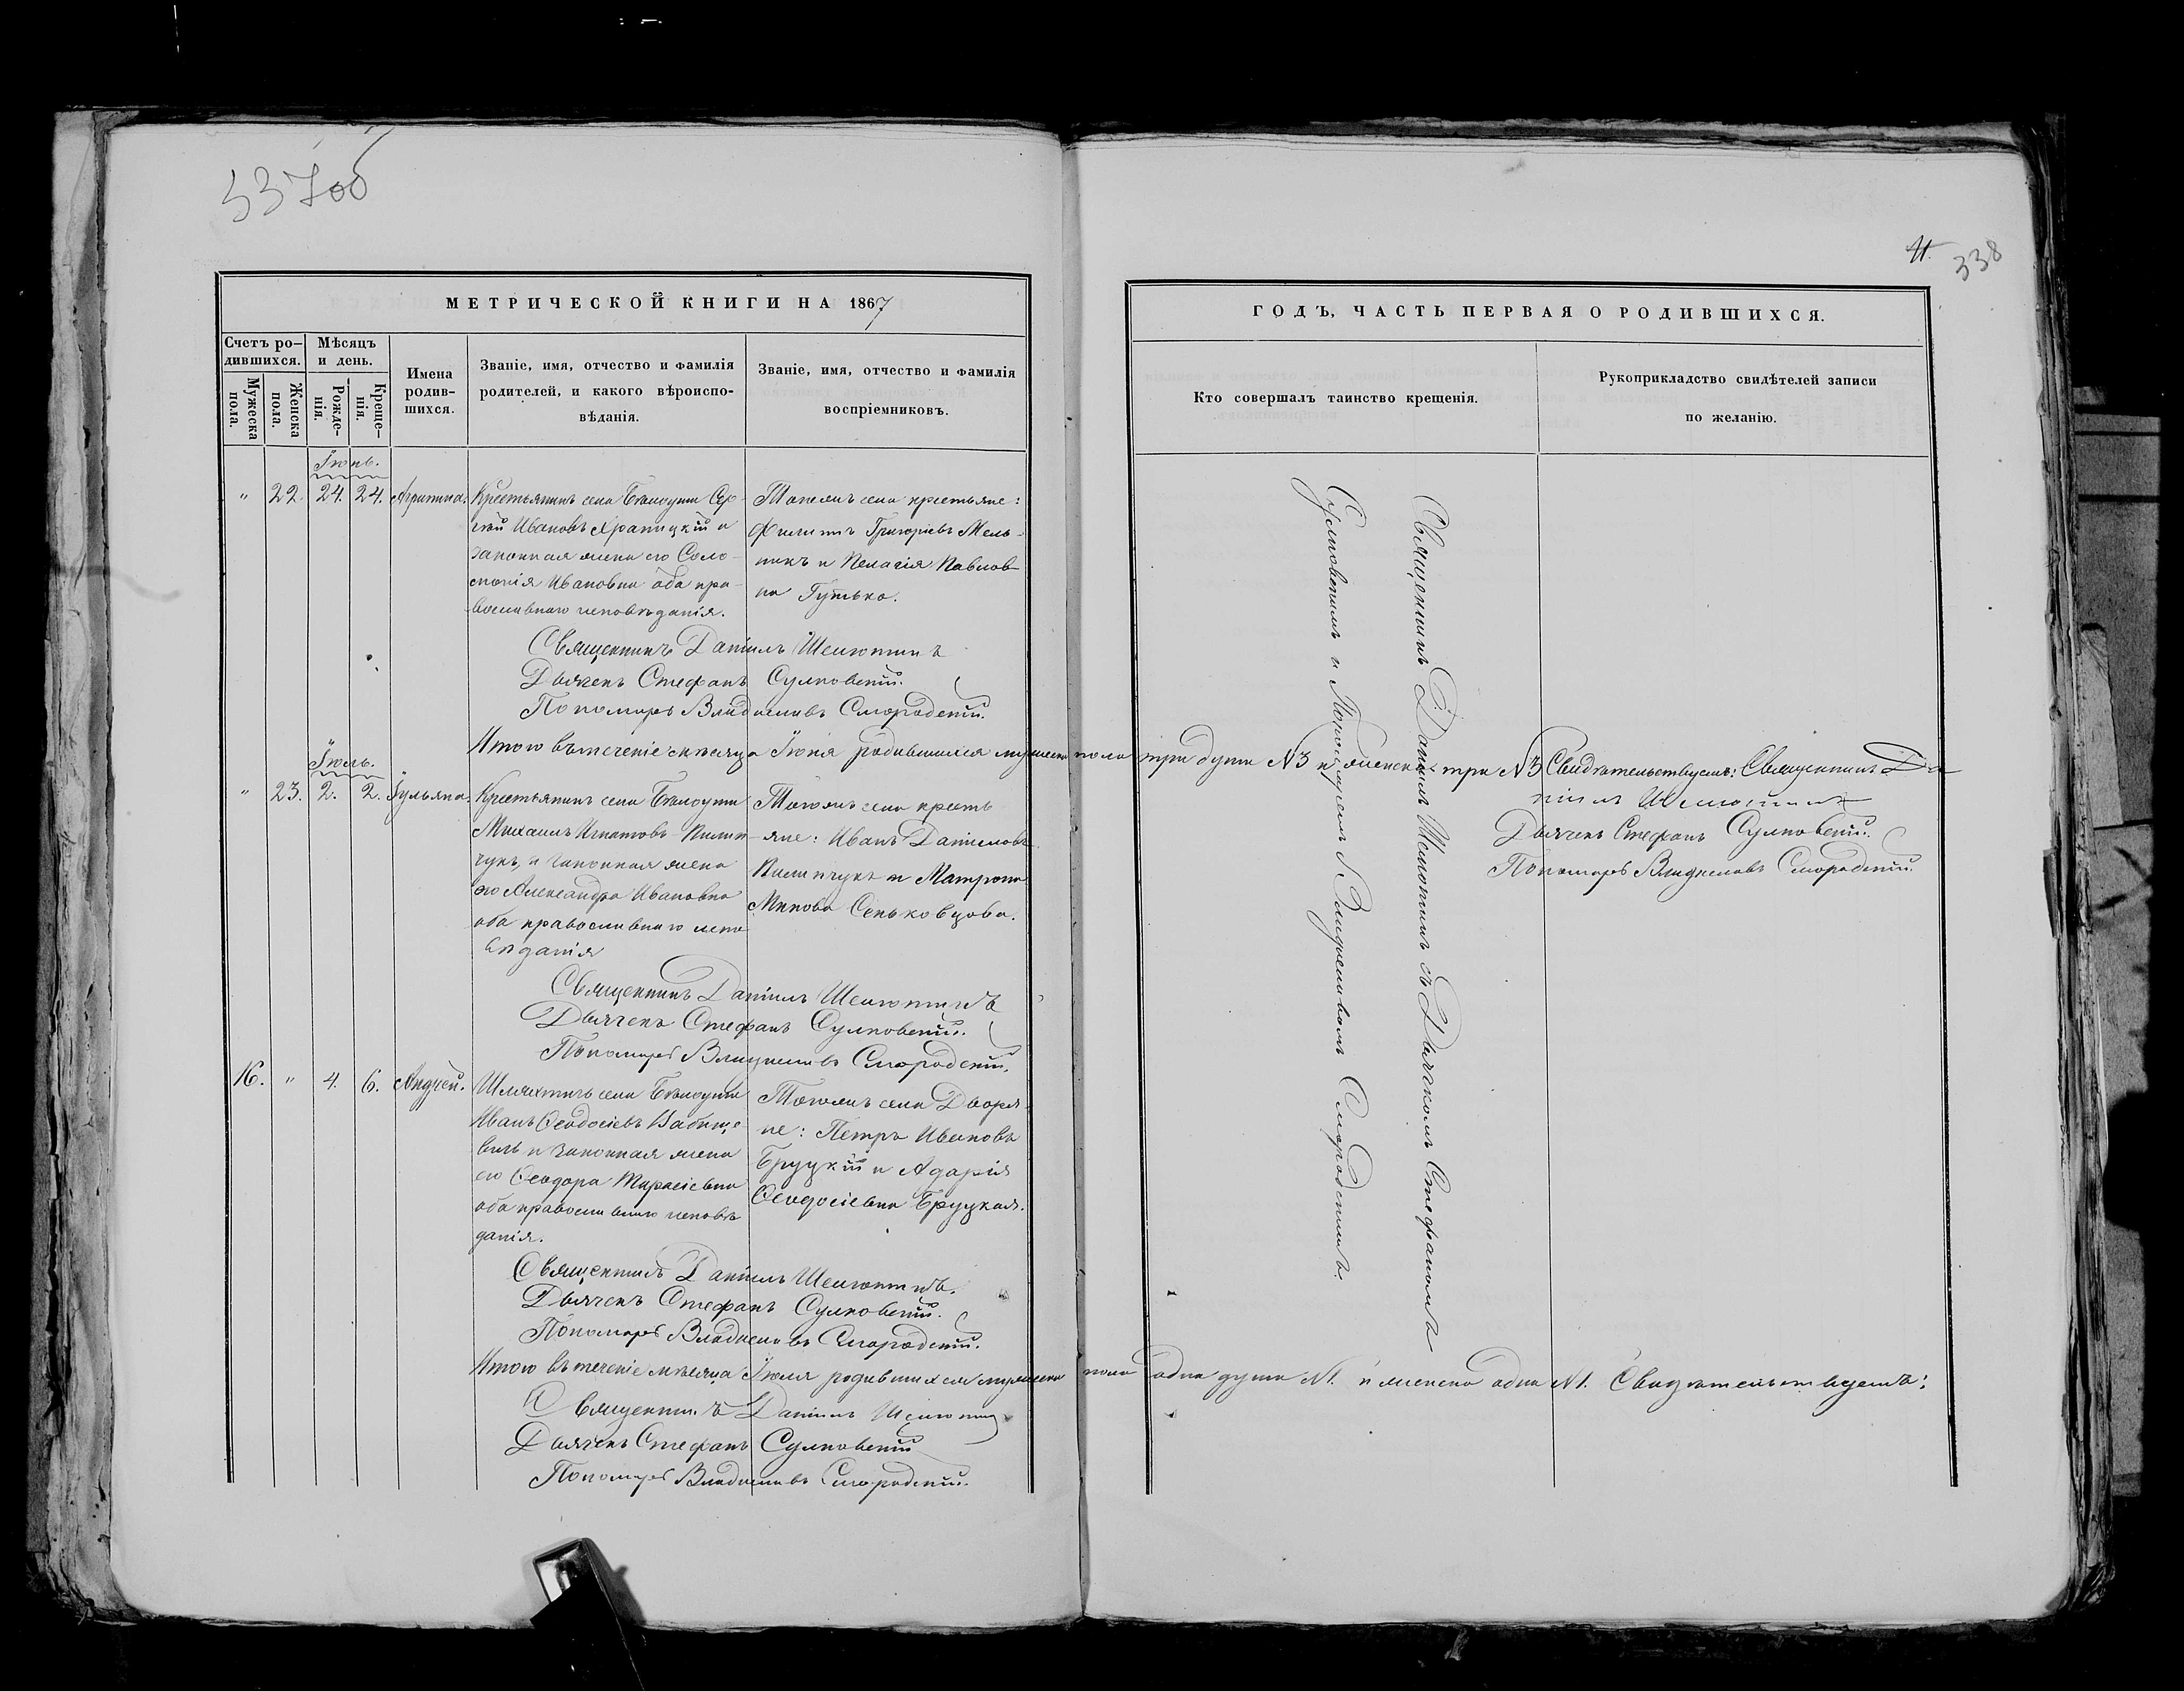 337об
МЕТРИЧЕСКОЙ КНИГИ НА 1867
Счетъ ро-
дившихся.
Мужеска
пола.
Женска
пола.
Мѣсяцъ
и день.
Рожде-
нія.
Креще-
нія.
Имена
родив-
шихся.
Званіе, имя, отчество и фамилія
родителей, и какого вѣроиспо-
вѣданія.
Званіе, имя, отчество и фамилія
воспріемниковъ.
Іюнь.
" 22. 24. 24.
Крестьянинъ села Бѣлоуши
Ивановъ Храпицкій и
законная жена его Соло-
Ивановна оба пра-
вославнаго исповѣданія.
Тогожъ села крестьяне:
Филиппъ Григорьевъ Мель-
никъ и Пелагія Павлов-
на Гутько.
Священникъ Даніилъ Шелютинъ
Дьячекъ Стефанъ Сулковскій.
Пономарь Владиславъ Смородскій.
Итого въ теченіе мѣсяца Іюня родившихся мужеска пола три души №3 и женска три №3 Свидѣтельствуемъ: Священникъ Да-
ніилъ Шелютинъ
Дьячекъ Стефанъ Сулковскій.
Пономарь Владиславъ Смородскій.
Іюль.
" 23. 2. 2. Іульяна.
Крестьянинъ села Бѣлоуши
Михаилъ Игнатовъ Пилип-
чукъ, и законная жена
его Александра Ивановна
оба православнаго испо-
вѣданія
Тогожъ села кресть-
яне: Иванъ Даніиловъ
Пилипчукъ и Матрона
Сеньковцова.
Священникъ Даніилъ Шелютинъ
Дьячекъ Стефанъ Сулковскій.
Пономарь Владиславъ Смородскій.
16. " 4. 6. Андрей.
Шляхтичъ села Бѣлоуши
Иванъ Ѳеодосіевъ Вабище-
вичъ и законная жена
его Ѳеодора Тарасіевна
оба православнаго исповѣ-
данія.
Тогожъ села Дворя-
не: Петръ Ивановъ
Бруцкій и Адарія
Ѳеодосіевна Бруцкая.
Священникъ Даніилъ Шелютинъ.
Дьячекъ Стефанъ Сулковскій.
Пономарь Владиславъ Смородскій.
Итого въ теченіе мѣсяца Іюля родившихся мужеска пола одна душа №1. и женска одна №1. Свидѣтельствуемъ:
Священникъ Даніилъ Шелютинъ
Дьячекъ Стефанъ Сулковскій
Пономарь Владиславъ Смородскій.
338
ГОДЪ, ЧАСТЬ ПЕРВАЯ О РОДИВШИХСЯ.
Кто совершалъ таинство крещенія.
Рукоприкладство свидѣтелей записи
по желанію.
Священникъ Даніилъ Шелютинъ съ Дьячкомъ Стефаномъ
Сулковскимъ и Пономаремъ Владиславомъ Смородскимъ.